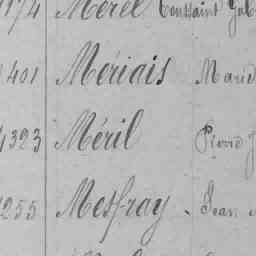 174 Mérel Toussaint
401 Mériais
4323 Méril Pierre
255 Mesfray - Jean